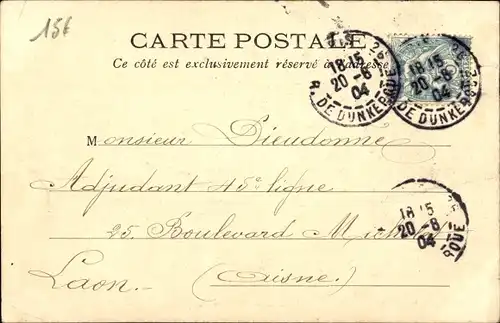 15€
CARTE POSTALE
Ce côté est exclusivement réservé à l'adresse
18 15
20 - 8
04
R. DE DUNKERQUE
18 15
20 - 8
04
DE DUNKERQUE
Monsieur Dieudonne
Adjudant 45e ligne
25. Boulevard
Laon - (Aisne)
18 15
20 - 8
04
RQUE